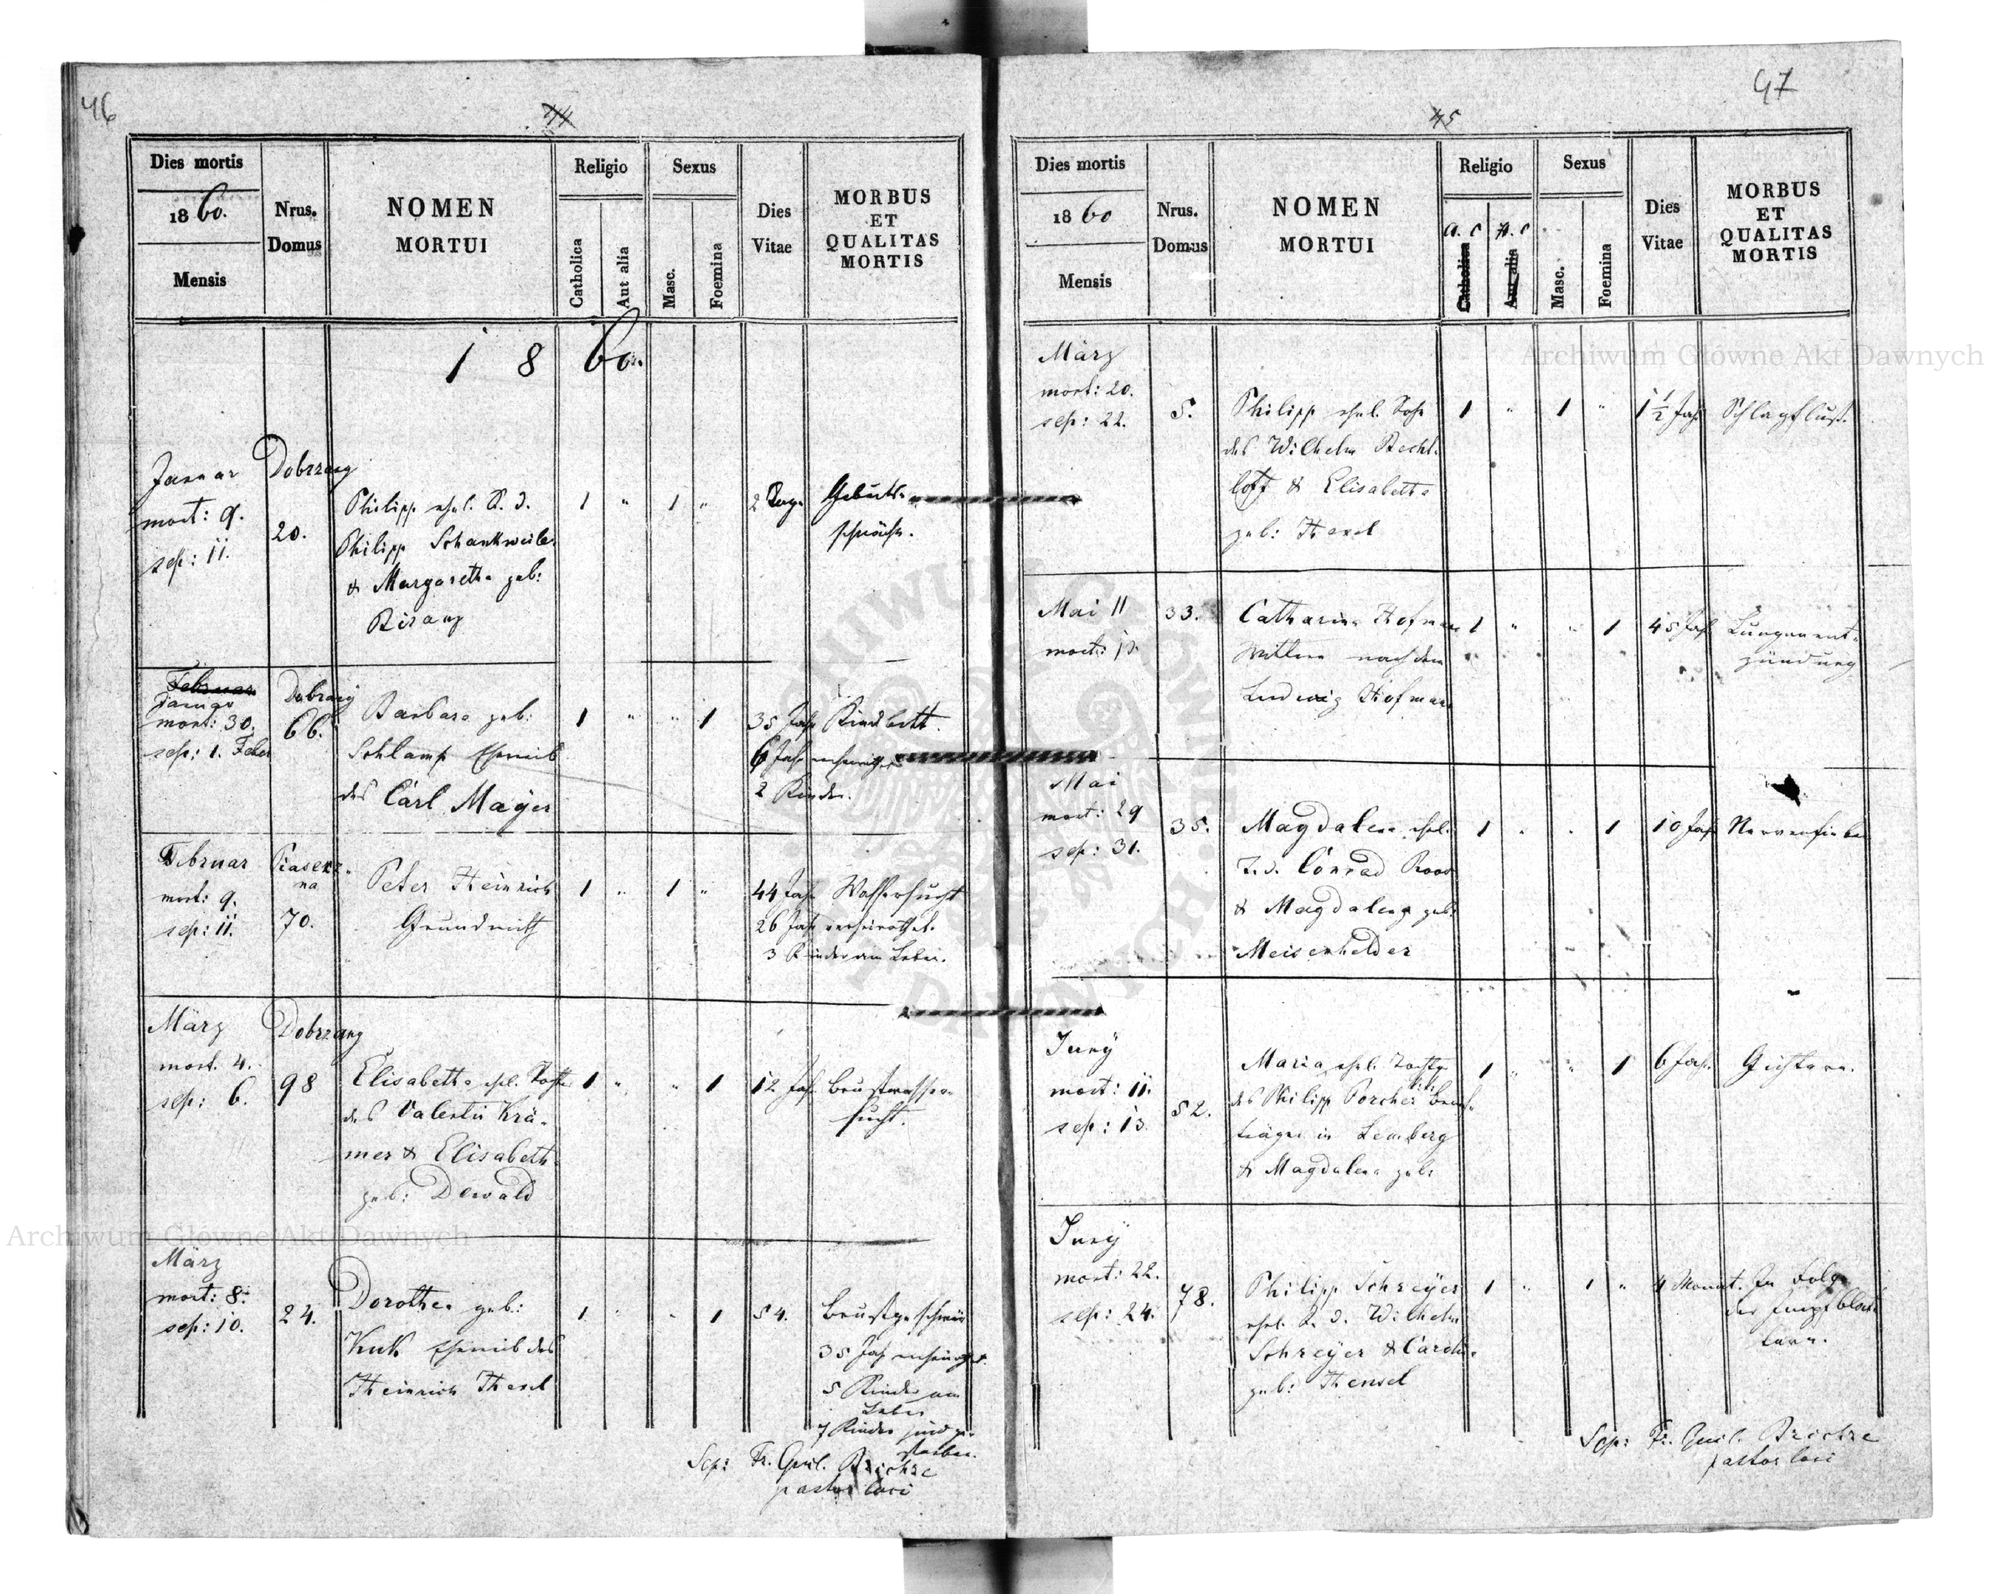 46
44
Dies mortis
1860.
Mensis
Nrus.
Domus
NOMEN
MORTUI
Religio
Catholica
Aut alia
Sexus
Masc.
Foemina
Dies
Vitae
MORBUS
ET
QUALITAS
MORTIS
1860.
Januar
mort: 9.
sep: 11.
Dobrzany
20.
Philipp ehel. S. d.
Philipp Schankweiler
& Margaretha geb:
Bisanz
1 " 1 "
2 Tage
Geburts-
schwäche.
Februar
Januar
mort: 30.
sep: 1. Feber
Dobrzany
66.
Barbara geb:
Schlamp Eheweib
des Carl Mayer
1 " " 1
35 Jahr Kindbett.
6 Jahr
2 Kinder.
Februar
mort: 9.
sep: 11.
Piasecz-
na
70.
Peter Heinrich
Grundwirth
1 " 1 "
44 Jahr Wassersucht
26 Jahr verheirathet.
3 Kinder am Leben.
März
mort. 4.
sep: 6.
Dobrzany
98
Elisabetha ehel. Tochter
des Valentin Krä-
mer & Elisabeth
geb: Dewald
1 " " 1
12 Jahr
Brustwasser-
sucht.
März
mort: 8.
sep: 10.
24.
Dorothea geb:
Kuk Eheweib des
Heinrich Thesel
1 " " 1
54.
Brustgeschwür
35 Jahr
5 Kinder am
Leben
7 Kinder sind ge-
storben.
Scp: Fr. Guil.
pastor loci
47
45
Dies mortis
1860
Mensis
Nrus.
Domus
NOMEN
MORTUI
Religio
A. C H. C
Catholica
Aut alia
Sexus
Masc.
Foemina
Dies
Vitae
MORBUS
ET
QUALITAS
MORTIS
März
mort: 20.
sep: 22.
5.
Philipp ehel. Sohn
des Wilhelm Becht-
loff & Elisabetha
geb: Thesel
1 " 1 "
1 1/2 Jahr
Schlagfluß.
Mai 11
mort: 13.
33.
Catharina Hofmann
Wittwe nach dem
Ludwig Hofmann
1 " " 1
45 Jahr
Lungenent-
zündung
Mai
mort: 29
sep: 31.
35.
Magdalena ehel.
T. d. Conrad Roos
& Magdalena geb:
Meisenhelder
1 " " 1
10 Jahr
Nervenfieber
Juny
mort: 11.
sep: 13.
52.
Maria ehel. Tochter
des Philipp Porcher
träger in Lemberg
& Magdalena geb:
1 " " 1
6 Jahr.
Juny
mort: 22.
sep: 24.
78.
Philipp Schreyer
ehel. S. d. Wilhelm
Schreyer & Carolina
geb: Hensel
1 " 1 "
4 Monat.
In Folge
der Impfblat-
tern.
Scp: Fr. Guil.
pastor loci
Archiwum Główne Akt Dawnych
Archiwum Główne Akt Dawnych
ARCHIWUM GŁÓWNE AKT DAWNYCH